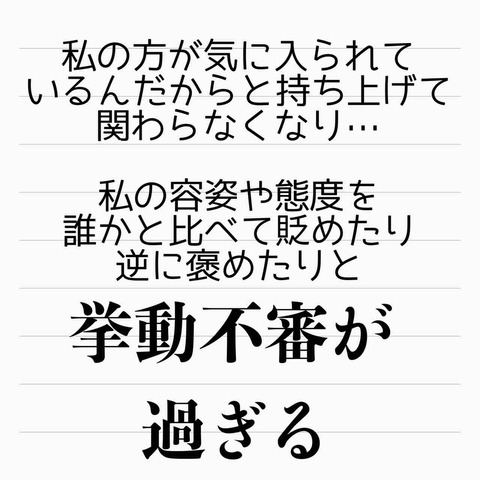 私の方が気に入られて
いるんだからと持ち上げて
関わらなくなり…
私の容姿や態度を
誰かと比べて貶めたり
逆に褒めたりと
挙動不審が
過ぎる